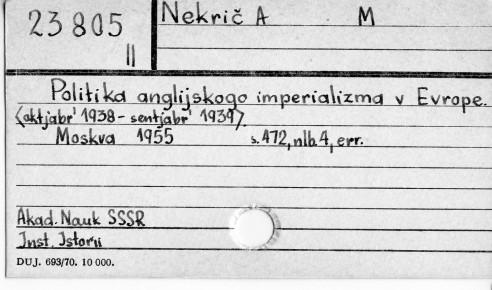 23 805
II
Nekrič A M
Politika anglijskogo imperializma v Evrope.
(oktjabr' 1938 - sentjabr' 1939).
Moskva 1955 s. 472, nlb. 4, err.
Akad. Nauk SSSR
Inst. Istorii
DUJ. 693/70. 10 000.